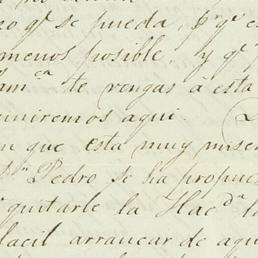 no q.e se pueda, p.r q.e es
menos posible, y q.e
te vengas á esta
uniremos aqui.
que esta muy miser
D.n Pedro se ha propues
quitarle la Hac.da la
facil arrancar de aqui